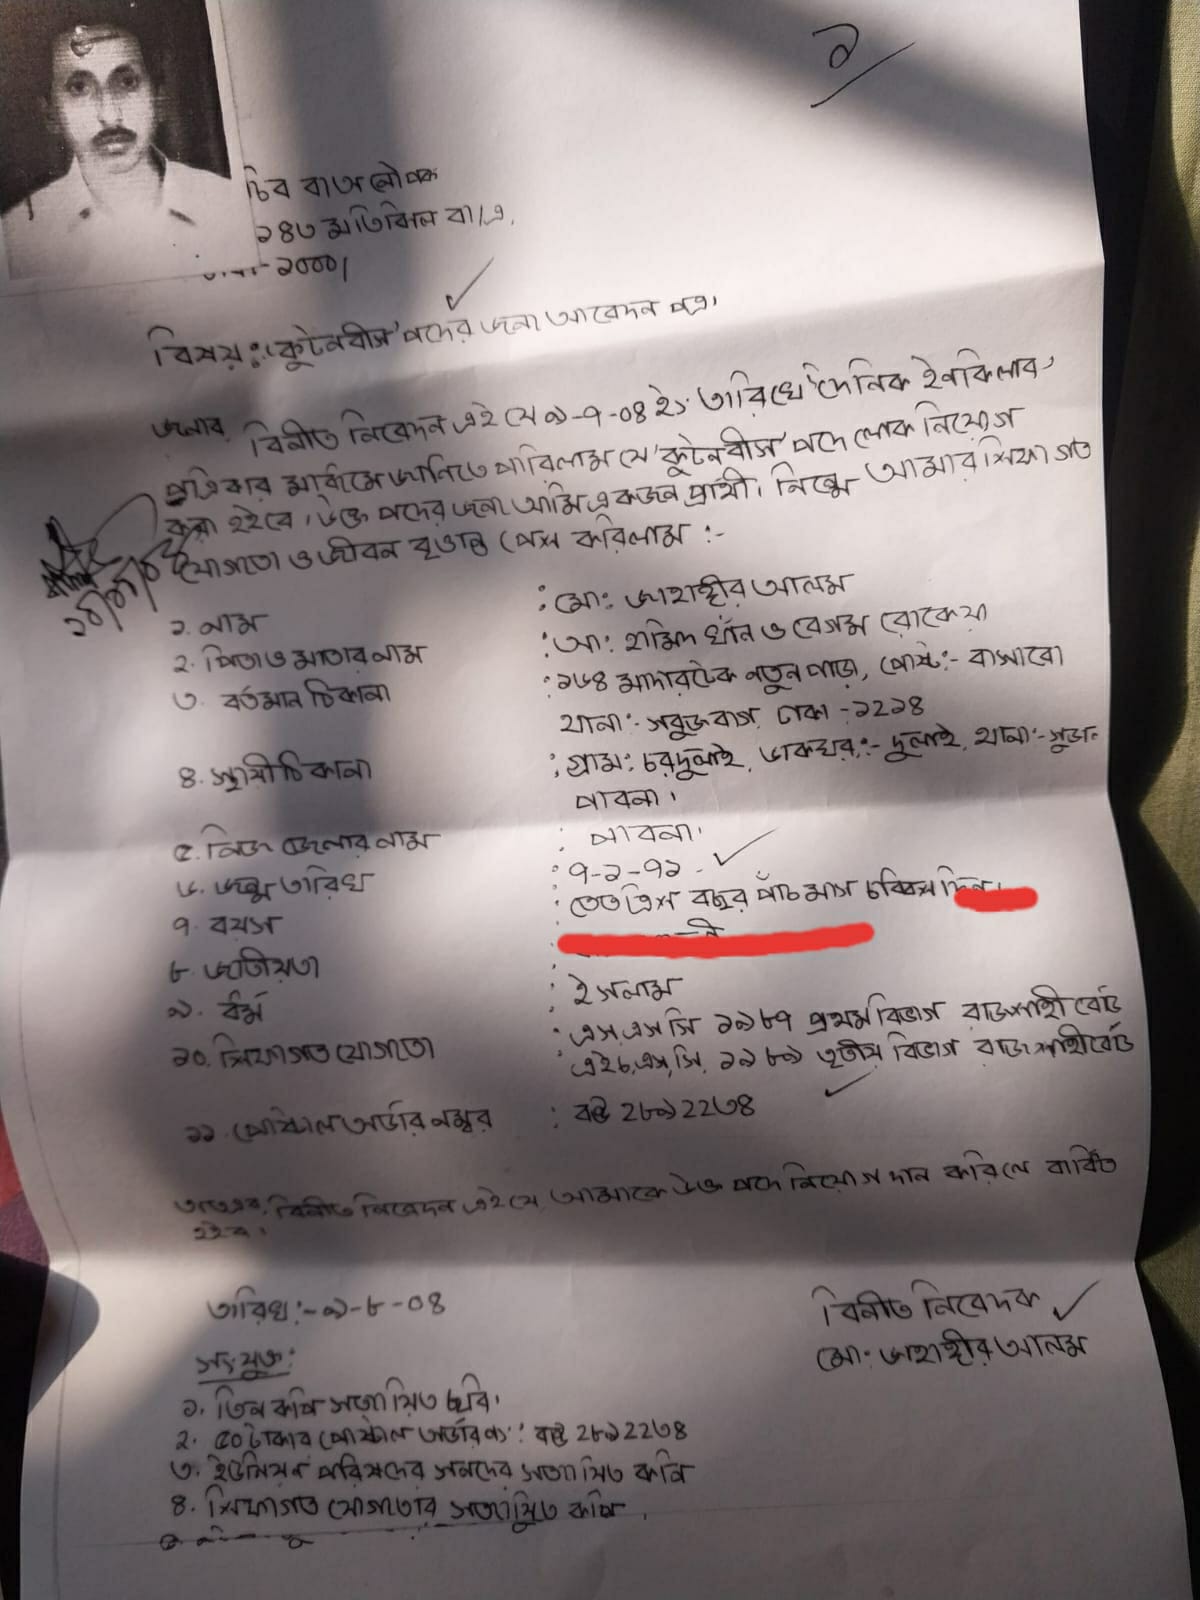 ১
১৪৩ মতিঝিল বা/এ,
-১০০০।
বিষয়:- 'কুটনৈবীস' পদের জন্য আবেদন পত্র।
জনাব,
বিনীত নিবেদন এই যে ৯-৭-০৪ ইং তারিখে 'দৈনিক ইনকিলাব'
পত্রিকার মাধ্যমে জানিতে পারিলাম যে 'কুটনৈবীস' পদে লোক নিয়োগ
করা হইবে। উক্ত পদের জন্য আমি একজন প্রার্থী। নিম্নে আমার শিক্ষাগত
যোগ্যতা ও জীবন বৃত্তান্ত পেশ করিলাম :-
১. নাম : মো: জাহাঙ্গীর আলম
২. পিতা ও মাতার নাম : আ: হামিদ খাঁন ও বেগম রোকেয়া
৩. বর্তমান ঠিকানা : ১৬৪ মাদারটেক নতুন পাড়া, পোষ্ট:- বাসাবো
থানা:- সবুজবাগ, ঢাকা -১২১৪
৪. স্থায়ী ঠিকানা : গ্রাম: চরদুলাই, ডাকঘর:- দুলাই, থানা:- সুজা
পাবনা।
৫. নিজ জেলার নাম : পাবনা।
৬. জন্ম তারিখ : ৭-১-৭১
৭. বয়স : তেত্রিশ বছর পাঁচ মাস চব্বিশ দিন।
৮. জাতীয়তা :
৯. ধর্ম : ইসলাম
১০. শিক্ষাগত যোগ্যতা : এস,এস,সি ১৯৮৭ প্রথম বিভাগ রাজশাহী বোর্ড
এইচ,এস,সি, ১৯৮৯ তৃতীয় বিভাগ রাজশাহী বোর্ড
১১. পোষ্টাল অর্ডার নম্বর : ২৮৯২২৩৪
অতএব, বিনীত নিবেদন এই যে, আমাকে উক্ত পদে নিয়োগ দান করিলে বাধিত
হইব।
তারিখ:- ৯-৮-০৪
বিনীত নিবেদক
মো: জাহাঙ্গীর আলম
সংযুক্ত:
১. তিন কপি সত্যায়িত ছবি।
২. ৫০ টাকার পোষ্টাল অর্ডার নং: ২৮৯২২৩৪
৩. ইউনিয়ন পরিষদের সনদের সত্যায়িত কপি
৪. শিক্ষাগত যোগ্যতার সত্যায়িত কপি,